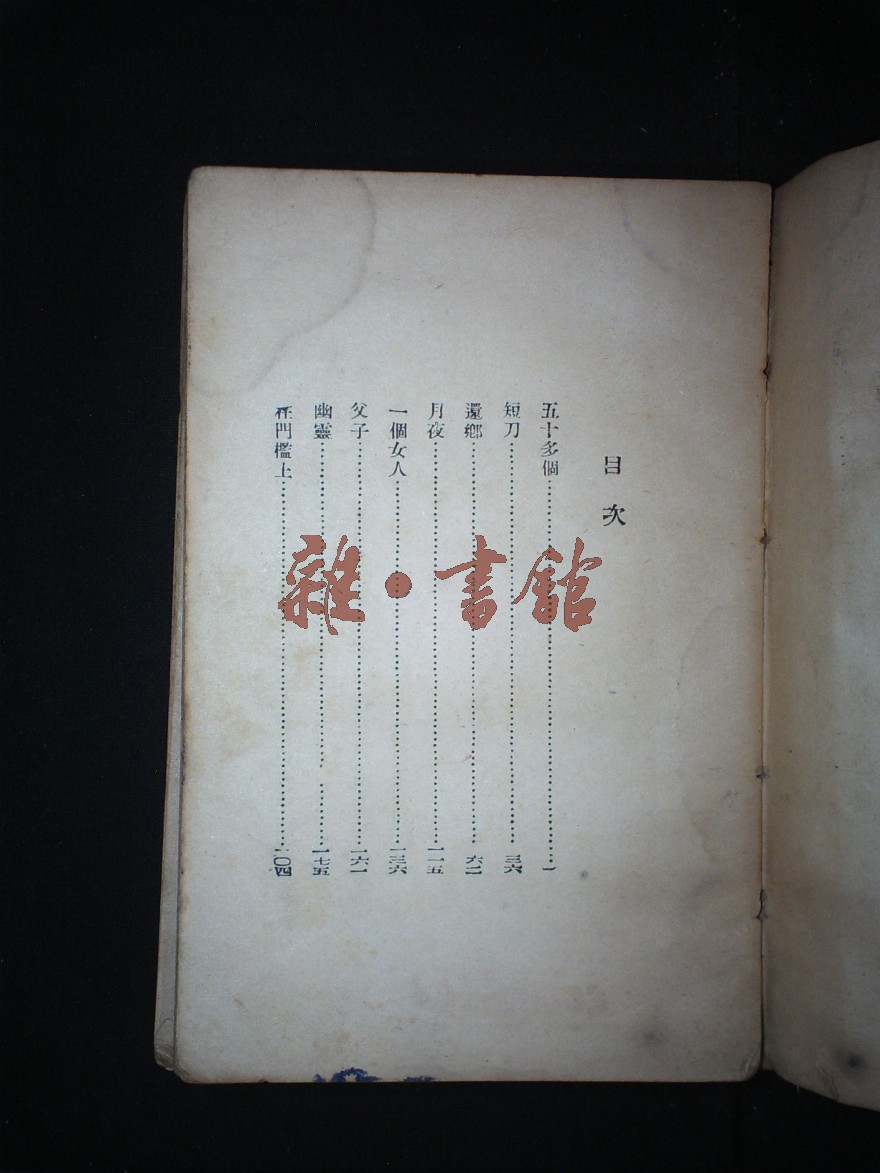 目次
五十多個……一
短刀……三六
還鄉……六二
月夜……一一五
一個女人……一三六
父子……一六一
幽靈……一七五
在門檻上……二〇四
雜·書館